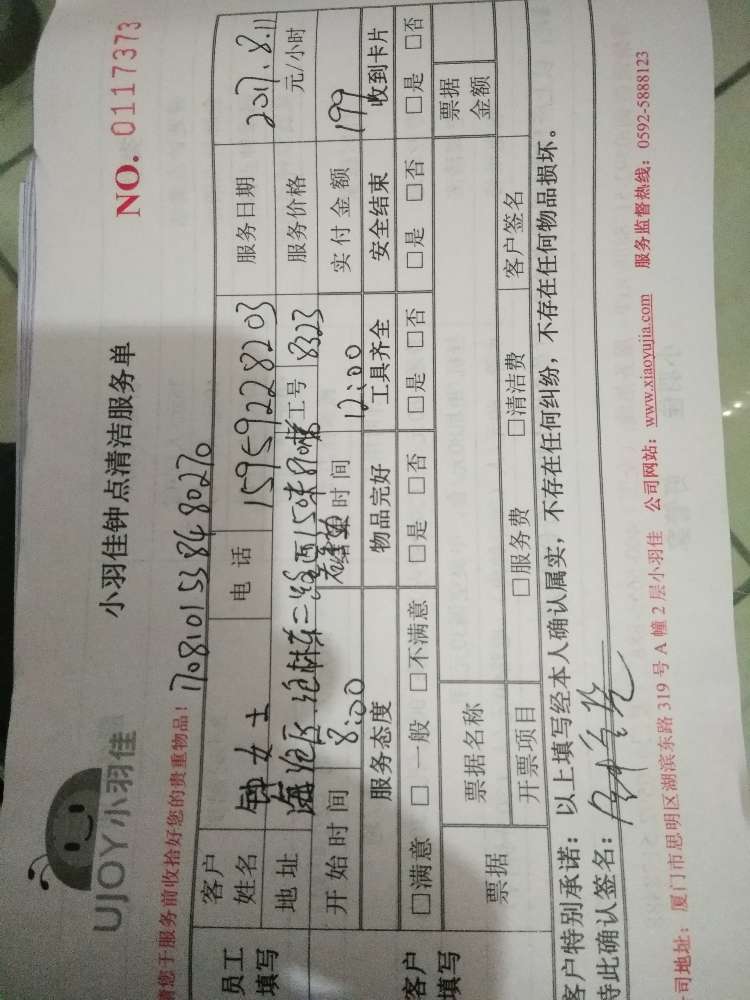 UJOY小羽佳
小羽佳钟点清洁服务单
NO. 0117373
请您于服务前收拾好您的贵重物品！
170810153848 0270
员工填写
客户姓名 钟女士 电话 15959228203 服务日期 2017.8.11
地址 海沧区沧林东二路 工号 8323 服务价格 元/小时
开始时间 8:00 时间 12:00 实付金额 199
客户填写
服务态度 物品完好 工具齐全 安全结束 收到卡片
□满意 □一般 □不满意 □是 □否 □是 □否 □是 □否 □是 □否
票据 票据名称 票据金额
开票项目 □服务费 □清洁费 客户签名
客户特别承诺：以上填写经本人确认属实，不存在任何纠纷，不存在任何物品损坏。
特此确认签名：
司地址：厦门市思明区湖滨东路 319 号 A 幢 2 层小羽佳 公司网站：www.xiaoyujia.com 服务监督热线：0592-5888123